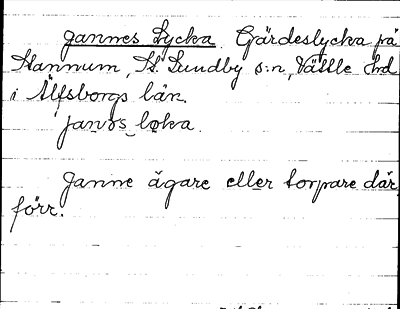 Jannes Lycka. Gärdeslycka på
Stannum, St. Lundby s:n, Vättle Hd
i Älfsborgs län.
janəs_løka.
Janne ägare eller torpare där
förr.